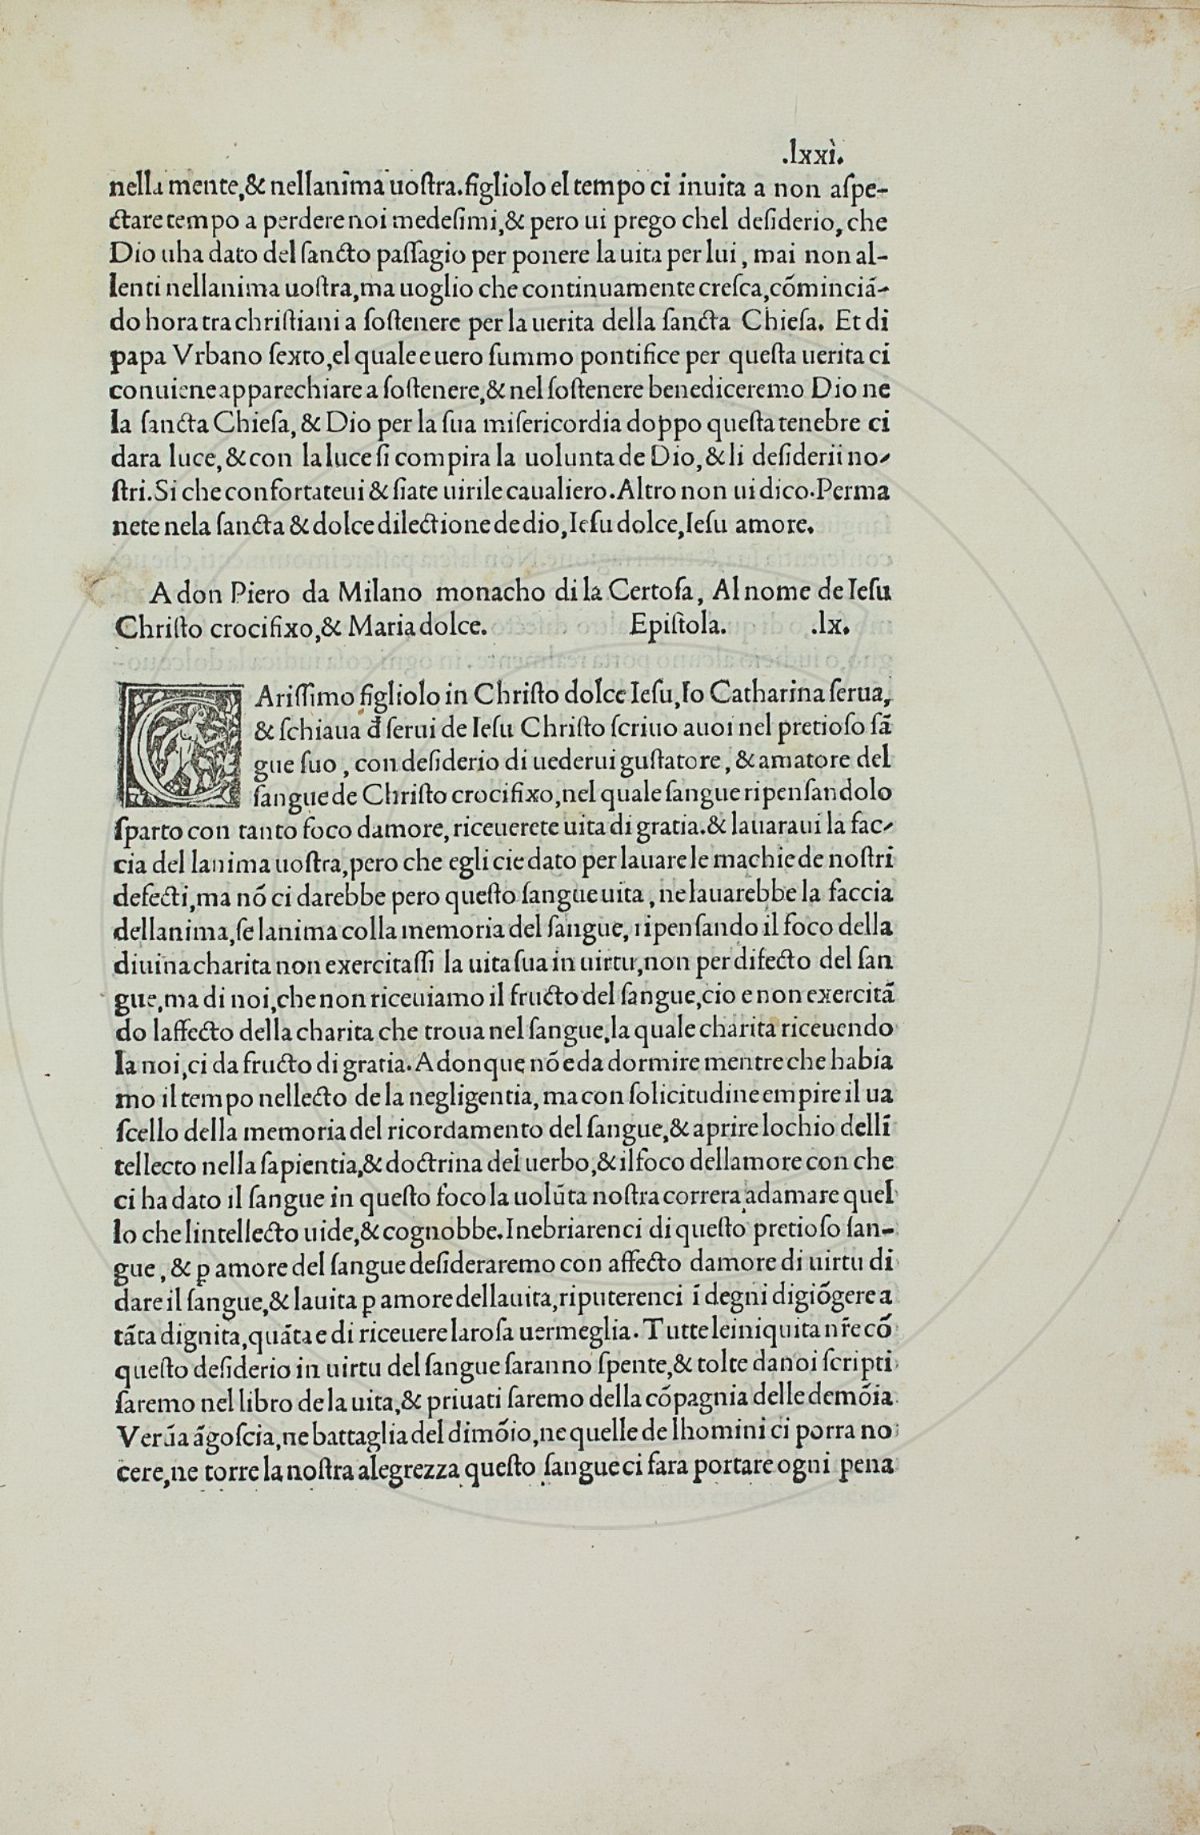 .lxxi.
nella mente,& nellanima uostra.figliolo el tempo ci inuita a non aſpe-
ctare tempo a perdere noi medeſimi,& pero ui prego chel deſiderio, che
Dio uha dato del ſancto paſſagio per ponere la uita per lui, mai non al-
lenti nellanima uoſtra,ma uoglio che continuamente creſca,cõminciã-
do hora tra chriſtiani a ſoſtenere per la uerita della ſancta Chieſa. Et di
papa Vrbano ſexto,el quale e uero ſummo pontifice per queſta uerita ci
conuiene apparechiare a ſoſtenere,& nel ſoſtenere benediceremo Dio ne
la ſancta Chieſa, & Dio per la ſua miſericordia doppo queſta tenebre ci
dara luce, & con la luce ſi compira la uolunta de Dio, & li deſiderii no-
ſtri.Si che confortateui & ſiate uirile caualiero.Altro non ui dico.Perma
nete nela ſancta & dolce dilectione de dio,Ieſu dolce,Ieſu amore.
A don Piero da Milano monacho di la Certoſa, Al nome de Ieſu
Chriſto crocifixo,& Maria dolce. Epiſtola. .lx.
CAriſſimo figliolo in Chriſto dolce Ieſu,Io Catharina ſerua,
& ſchiaua đ ſerui de Ieſu Chriſto ſcriuo auoi nel pretioſo ſã
gue ſuo, con deſiderio di uederui guſtatore, & amatore del
ſangue de Chriſto crocifixo,nel quale ſangue ripenſandolo
ſparto con tanto foco damore, riceuerete uita di gratia.& lauaraui la fac-
cia del lanima uoſtra,pero che egli cie dato per lauare le machie de noſtri
defecti,ma nõ ci darebbe pero queſto ſangue uita, ne lauarebbe la faccia
dellanima,ſe lanima colla memoria del ſangue, ripenſando il foco della
diuina charita non exercitaſſi la uita ſua in uirtu,non per difecto del ſan
gue,ma di noi,che non riceuiamo il fructo del ſangue,cio e non exercitã
do laffecto della charita, che troua nel ſangue,la quale charita riceuendo
la noi,ci da fructo di gratia.Adonque nõ e da dormire mentre che habia
mo il tempo nellecto de la negligentia, ma con ſolicitudine empire il ua
ſcello della memoria del ricordamento del ſangue,& aprire lochio dellĩ
tellecto nella ſapientia,& doctrina del uerbo,& il foco dellamore con che
ci ha dato il ſangue in queſto foco la uolũta noſtra correra adamare quel
lo che lintellecto uide,& cognobbe.Inebriarenci di queſto pretioſo ſan-
gue, & ꝑ amore del ſangue deſideraremo con affecto damore di uirtu di
dare il ſangue,& la uita ꝑ amore dellauita,riputerenci ĩ degni digiõgere a
tãta dignita,quãta e di riceuere la roſa uermeglia. Tutte le iniquita nr̃e cõ
queſto deſiderio in uirtu del ſangue ſaranno ſpente,& tolte da noi ſcripti
ſaremo nel libro de la uita,& priuati ſaremo della cõpagnia delle demõia
Verũa ãgoſcia,ne battaglia del dimõio,ne quelle de lhomini ci porra no
cere,ne torre la noſtra alegrezza queſto ſangue ci fara portare ogni pena